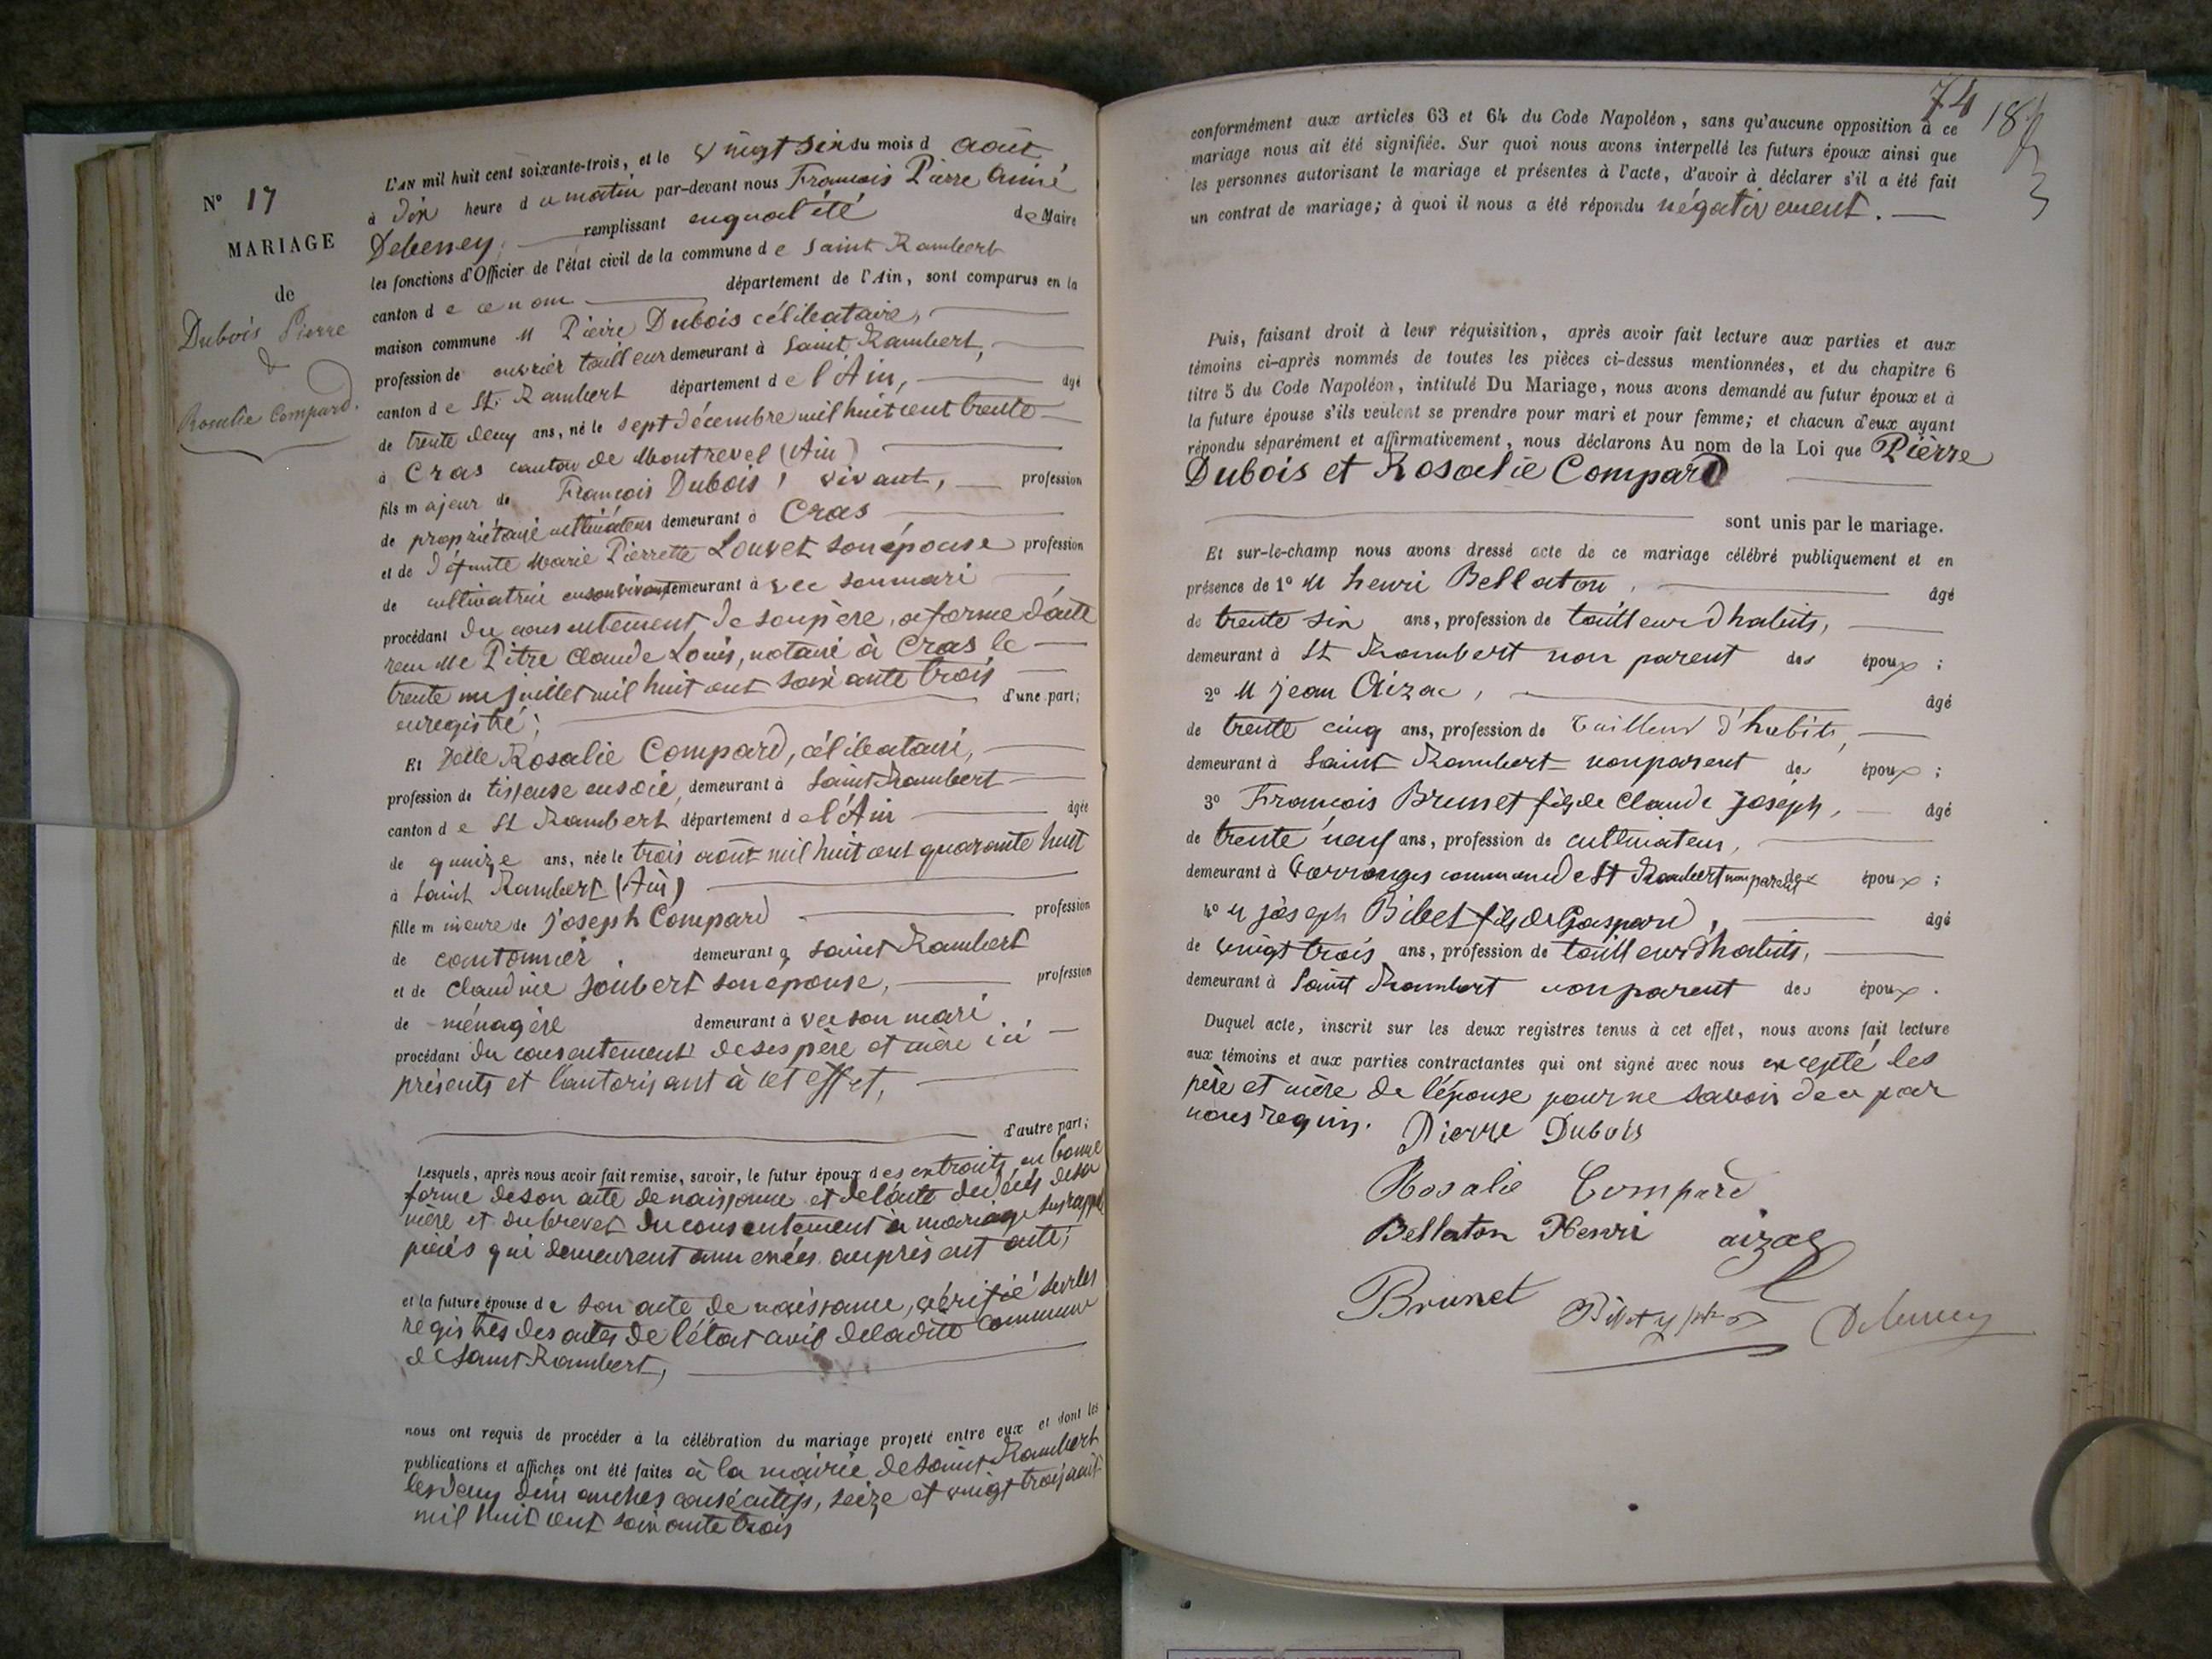 N° 17
MARIAGE
de
Dubois Pierre
&
Rosalie Compard.
L'AN mil huit cent soixante-trois, et le vingt six du mois d août
à dix heure d u matin par-devant nous François Pierre Aimé
Debeney, remplissant en qualité de Maire
les fonctions d'Officier de l'état civil de la commune d e Saint Rambert
canton d e ce nom département de l'Ain, sont comparus en la
maison commune M Pierre Dubois célibataire,
profession de ouvrier tailleur demeurant à Saint Rambert,
canton d e St. Rambert département d e l'Ain, âgé
de trente deux ans, né le sept décembre mil huit cent trente
à Cras canton de Montrevel (Ain)
fils majeur de François Dubois, vivant, profession
de propriétaire cultivateur demeurant à Cras
et de défunte Marie Pierrette Louvet son épouse profession
de cultivatrice en son vivant demeurant à vec son mari
procédant du consentement de son père, en forme d'acte
reçu Me Pitre Claude Louis, notaire à Cras le
trente un juillet mil huit cent soixante trois
enregistré; d'une part;
Et Delle Rosalie Compard, célibataire,
profession de tisseuse en soie, demeurant à Saint Rambert
canton d e St Rambert département d e l'Ain âgée
de quinze ans, née le trois août mil huit cent quarante huit
à Saint Rambert (Ain)
fille mineure de Joseph Compard profession
de cantonnier, demeurant à Saint Rambert
et de Claudine Joubert son épouse, profession
de ménagère demeurant à vec son mari
procédant du consentement de ses père et mère ici
présents et l'autorisant à cet effet,
d'autre part;
Lesquels, après nous avoir fait remise, savoir, le futur époux des extraits en bonne
forme de son acte de naissance et de l'acte de décès de sa
mère et du brevet du consentement à mariage sus
pièces qui demeurent annexées au présent acte;
et la future épouse d e son acte de naissance, vérifié sur les
registres des actes de l'état civil de la dite commune
de Saint Rambert,
nous ont requis de procéder à la célébration du mariage projeté entre eux et dont les
publications et affiches ont été faites à la mairie de Saint Rambert
les deux dimanches consécutifs, seize et vingt trois août
mil huit cent soixante trois
74
conformément aux articles 63 et 64 du Code Napoléon, sans qu'aucune opposition à ce
mariage nous ait été signifiée. Sur quoi nous avons interpellé les futurs époux ainsi que
les personnes autorisant le mariage et présentes à l'acte, d'avoir à déclarer s'il a été fait
un contrat de mariage; à quoi il nous a été répondu négativement.
Puis, faisant droit à leur réquisition, après avoir fait lecture aux parties et aux
témoins ci-après nommés de toutes les pièces ci-dessus mentionnées, et du chapitre 6
titre 5 du Code Napoléon, intitulé Du Mariage, nous avons demandé au futur époux et à
la future épouse s'ils veulent se prendre pour mari et pour femme; et chacun d'eux ayant
répondu séparément et affirmativement, nous déclarons Au nom de la Loi que Pièrre
Dubois et Rosalie Compard
sont unis par le mariage.
Et sur-le-champ nous avons dressé acte de ce mariage célébré publiquement et en
présence de 1° M henri Bellaton, âgé
de trente six ans, profession de tailleur d'habits,
demeurant à St Rambert non parent des époux;
2° M jean Aizac, âgé
de trente cinq ans, profession de tailleur d'habits,
demeurant à Saint Rambert non parent des époux;
3° François Brunet fils de Claude Joseph, âgé
de trente neuf ans, profession de cultivateur,
demeurant à commune de St Rambert non parent des époux;
4° M joseph Bibet fils de Gaspard, âgé
de vingt trois ans, profession de tailleur d'habits,
demeurant à Saint Rambert non parent des époux.
Duquel acte, inscrit sur les deux registres tenus à cet effet, nous avons fait lecture
aux témoins et aux parties contractantes qui ont signé avec nous excepté les
père et mère de l'épouse pour ne savoir de ce par
nous requis. Pierre Dubois
Rosalie Compard
Bellaton Henri aizac
Brunet Debeney